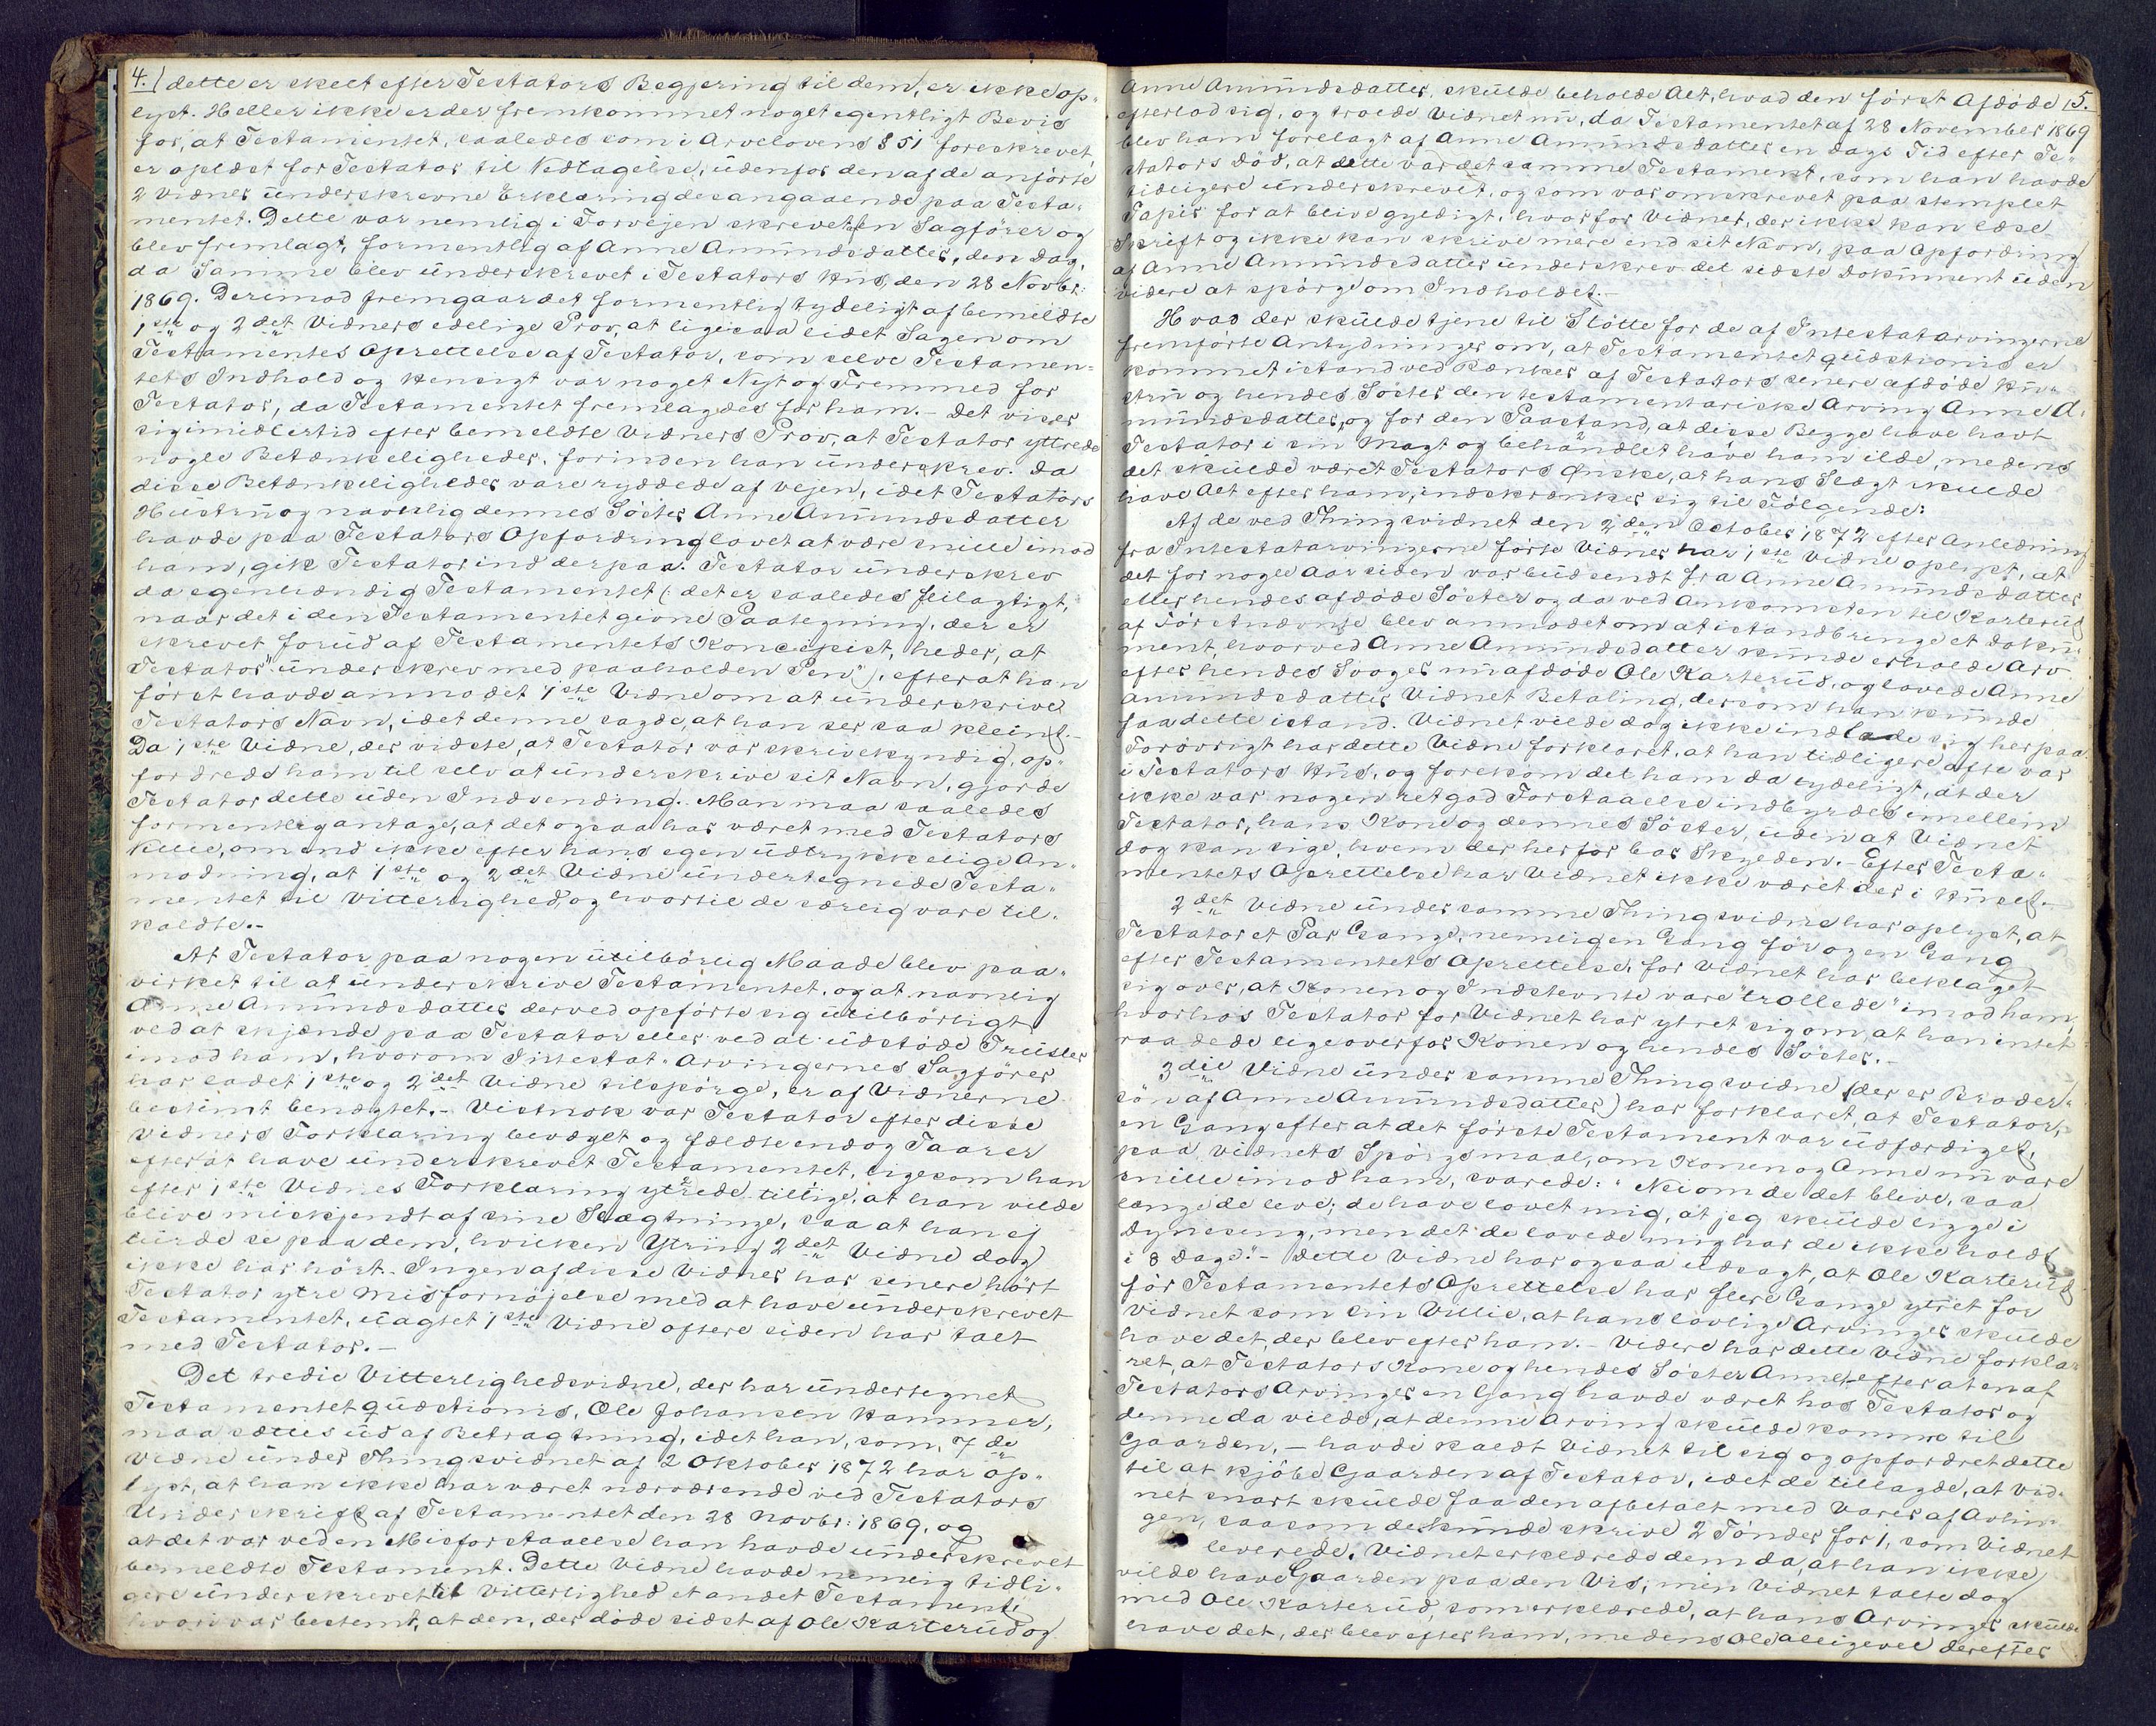 4.
dette er skeet efter Testators Begjering til dem, er ikke op-
lyst. Heller ikke er der fremkommet noget egentligt Bevis
for, at Testamentet, saaledes som i Arvelovens § 51 foreskrevet,
er oplæst for Testator til Vedtagelse, udenfor den af de anførte
2 Vidner underskrevne Erklæring desangaaende paa Testa-
mentet. Dette var nemlig i Forvejen skrevet af en Sagfører og
blev fremlagt, formentlig af Anne Amundsdatter, den Dag,
da Samme blev underskrevet i Testators Hus, den 28 Novbr:
1869. Deremod fremgaar det formentlig tydeligt af bemeldte
1ste og 2det Vidners edelige Prov, at ligesaa lidet Sagen om
Testamentes Oprettelse af Testator, som selve Testamen-
tets Indhold og Hensigt var noget Nyt og Fremmed for
Testator, da Testamentet fremlagdes for ham. – Det viser
sig imidlertid efter bemeldte Vidners Prov, at Testator yttrede
nogle Betænkeligheder, forinden han underskrev. Da
disse Betænkeligheder vare ryddede af Vejen, idet Testators
Hustru og navnlig dennes Søster Anne Amundsdatter
havde paa Testators Opfordring lovet at være snille imod
ham, gik Testator ind derpaa. Testator underskrev
da egenhændig Testamentet (: det er saaledes feilagtigt,
naar det i den Testamentet givne Paategning, der er
skrevet forud af Testamentets Koncipist, heder, at
Testator "underskrev med paaholden Pen"), efterat han
først havde anmodet 1ste Vidne om at underskrive
Testators Navn, idet denne sagde, at han ser saa kleint. –
Da 1ste Vidne, der vidste, at Testator var skrivekyndig, op-
fordrede ham til selv at underskrive sit Navn, gjorde
Testator dette uden Indvending. Man maa saaledes
formentlig antage, at det ogsaa har været med Testators
Villie, om end ikke efter hans egen udtrykkelige An-
modning, at 1ste og 2det Vidne undertegnede Testa-
mentet til Vitterlighed, og hvortil de særlig vare til-
kaldte. –
At Testator paa nogen utilbørlig Maade blev paa-
virket til at underskrive Testamentet, og at navnlig
Anne Amundsdatter derved opførte sig utilbørligt
ved at skjænde paa Testator eller ved at udstøde Trusler
imod ham, hvorom Intestat-Arvingernes Sagfører
har ladet 1ste og 2det Vidne tilspørge, er af Vidnerne
bestemt benægtet. – Vistnok var Testator efter disse
Vidners Forklaring bevæget og fældte endog Taarer
efter at have underskrevet Testamentet, ligesom han
efter 1ste Vidnes Forklaring ytrede tillige, at han vilde
blive miskjendt af sine Slægtninge, saa at han ej
turde se paa dem, hvilken Ytring 2det Vidne dog
ikke har hørt. Ingen af disse Vidner har senere hørt
Testator ytre Misfornøjelse med at have underskrevet
Testamentet, uagtet 1ste Vidne oftere siden har talt
med Testator. –
Det tredie Vitterlighedsvidne, der har undertegnet
Testamentet quæstionis, Ole Johansen Hammer,
maa sættes ud af Betragtning, idet han, som 7de
Vidne under Thingsvidnet af 2 Oktober 1872 har op-
lyst, at han ikke har været nærværende ved Testators
Underskrift af Testamentet den 28 Novbr: 1869, og
at det var ved en Misforstaaelse han havde underskrevet
bemeldte Testament. Dette Vidne havde nemlig tidli-
gere underskrevet til Vitterlighed et andet Testamente
hvori var bestemt, at den, der døde sidst af Ole Karterud og
5.
Anne Amundsdatter, skulde beholde Alt, hvad den først Afdøde
efterlod sig, og troede Vidnet nu, da Testamentet af 28 November 1869
blev ham forelagt af Anne Amundsdatter en Dags Tid efter Te-
stators Død, at dette var det samme Testament, som han havde
tidligere underskrevet, og som var omskrevet paa stemplet
Papir for at blive gyldigt, hvorfor Vidnet, der ikke kan læse
Skrift og ikke kan skrive mere end sit Navn, paa Opfordring
af Anne Amundsdatter underskrev det sidste Dokument uden
videre at spørge om Indholdet. –
Hvad der skulde tjene til Støtte for de af Intestatarvingerne
fremførte Antydninger om, at Testamentet quæstionis er
kommet istand ved Rænker af Testators senere afdøde Hu-
stru og hendes Søster den testamentariske Arving Anne A-
mundsdatter, og for den Paastand, at disse Begge have havt
Testator i sin Magt og behandlet have ham ilde, medens
det skulde været Testators Ønske, at hans Slægt skulde
have Alt efter ham, indskrænker sig til Følgende:
Af de ved Thingsvidnet den 2den October 1872 efter Anledning
fra Intestatarvingerne førte Vidner har 1ste Vidne oplyst, at
det for nogle Aar siden var budsendt fra Anne Amundsdatter
eller hendes afdøde Søster og da ved Ankomsten til Karterud
af Førstnævnte blev anmodet om at istandbringe et Doku-
ment, hvorved Anne Amundsdatter kunde erholde Arv
efter hendes Svoger nu afdøde Ole Karterud, og lovede Anne
Amundsdatter Vidnet Betaling, dersom han kunde
faa dette istand. Vidnet vilde dog ikke indlade sig herpaa.
Forøvrigt har dette Vidne forklaret, at han tidligere ofte var
i Testators Hus, og forekom det ham da tydeligt, at der
ikke var nogen ret god Forstaaelse indbyrdes imellem
Testator, hans Kone og dennes Søster, uden at Vidnet
dog kan sige, hvem der herfor bar Skylden. – Efter Testa-
mentets Oprettelse har Vidnet ikke været der i Huset. –
2det Vidne under samme Thingsvidne har oplyst, at
Testator et Par Gange, nemlig en Gang før og en Gang
efter Testamentets Oprettelse, for Vidnet har beklaget
sig over, at Konen og Indstevnte vare "trollede" imod ham,
hvorhos Testator for Vidnet har ytret sig om, at han intet
raadede ligeoverfor Konen og hendes Søster. –
3die Vidne under samme Thingsvidne (der er Broder-
søn af Anne Amundsdatter) har forklaret, at Testator,
en Gang efter at det første Testament var udfærdiget,
paa Vidnets Spørgsmaal, om Konen og Anne nu vare
snille imod ham, svarede: "Nei om de det blive, saa
længe de leve; de have lovet mig, at jeg skulde ligge i
Dyneseng, men det de lovede mig har de ikke holdt
i 8 Dage." – Dette Vidne har ogsaa udsagt, at Ole Karterud
før Testamentets Oprettelse har flere Gange ytret for
Vidnet som sin Villie, at hans lovlige Arvinger skulde
have det, der blev efter ham. – Videre har dette Vidne forkla-
ret, at Testators Kone og hendes Søster Anne – efter at en af
Testators Arvinger en Gang havde været hos Testator og
denne da vilde, at denne Arving skulde komme til
Gaarden, – havde kaldt Vidnet til sig og opfordret dette
til at kjøbe Gaarden af Testator, idet de tillagde, at Vid-
net snart skulde faa den afbetalt med Varer af Avlin-
gen, saasom de kunde skrive 2 Tønder for 1, som Vidnet
leverede. Vidnet erklærede dem da, at han ikke
vilde have Gaarden paa den Vis; men Vidnet talte dog
med Ole Karterud, som erklærede, at hans Arvinger skulde
have det, der blev efter ham, medens Ole alligevel derefter